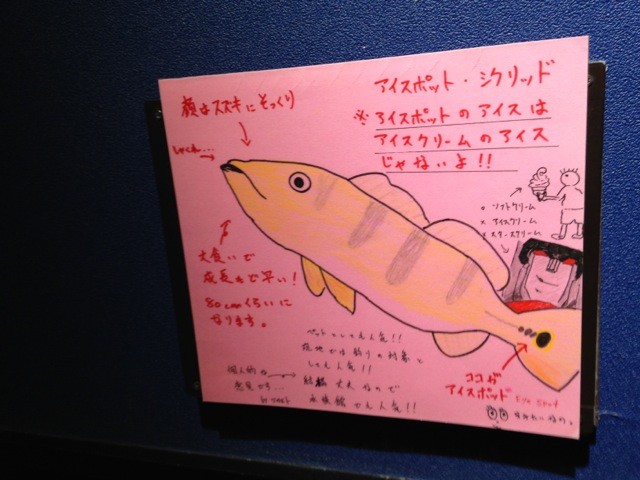 アイスポット・シクリッド
※アイスポットのアイスは
アイスクリームのアイス
じゃないよ!!
顔はスズキにそっくり
しゃくれ…
ソフトクリーム
× アイスクリーム
× スタースクリーム
大食いで
成長も早い!
80cmくらいに
なります。
ペットとしても人気!!
現地では釣りの対象と
しても人気!!
結構丈夫なので
水族館でも人気!!
個人的な
意見から…
ココが
アイスポット